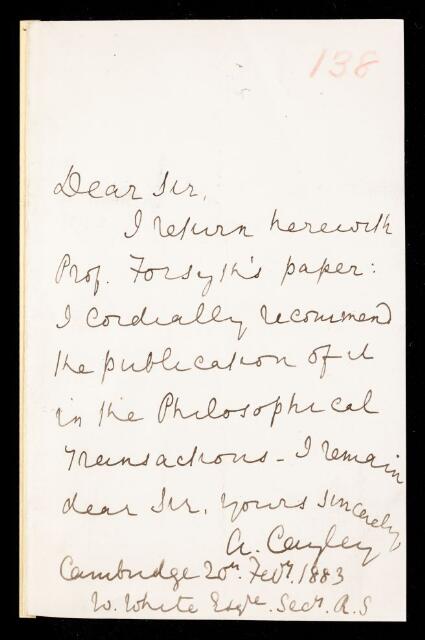 138
Dear Sir,
I return herewith
Prof. Forsyth's paper:
I cordially recommend
the publication of it
in the Philosophical
Transactions - I remain
dear Sir, yours sincerely,
A. Cayley
Cambridge 20th. Feby. 1883
W. White Esqre. Secy. R.S